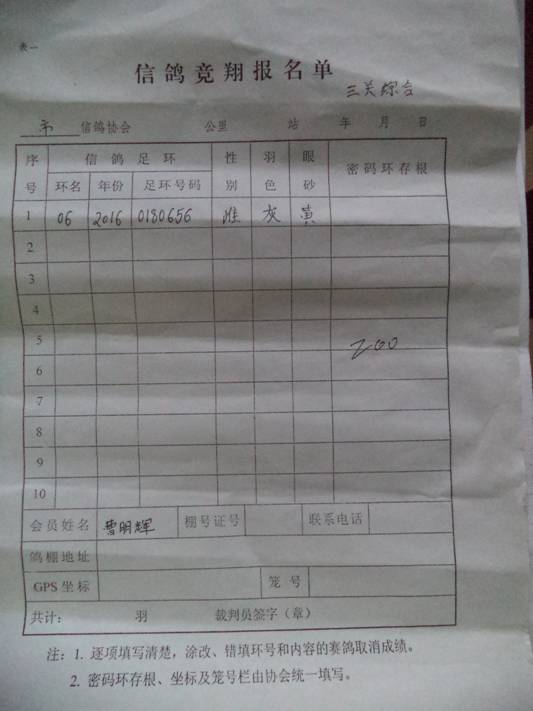 表一
信鸽竞翔报名单
三关综合
市 信鸽协会 公里 站 年 月 日
序号 信鸽足环 性别 羽色 眼砂 密码环存根
环名 年份 足环号码
1 06 2016 0180656 雌 灰 黄
2
3
4
5 200
6
7
8
9
10
会员姓名 曹明辉 棚号证号 联系电话
鸽棚地址
GPS坐标 笼号
共计: 羽 裁判员签字(章)
注:1. 逐项填写清楚,涂改、错填环号和内容的赛鸽取消成绩。
2. 密码环存根、坐标及笼号栏由协会统一填写。